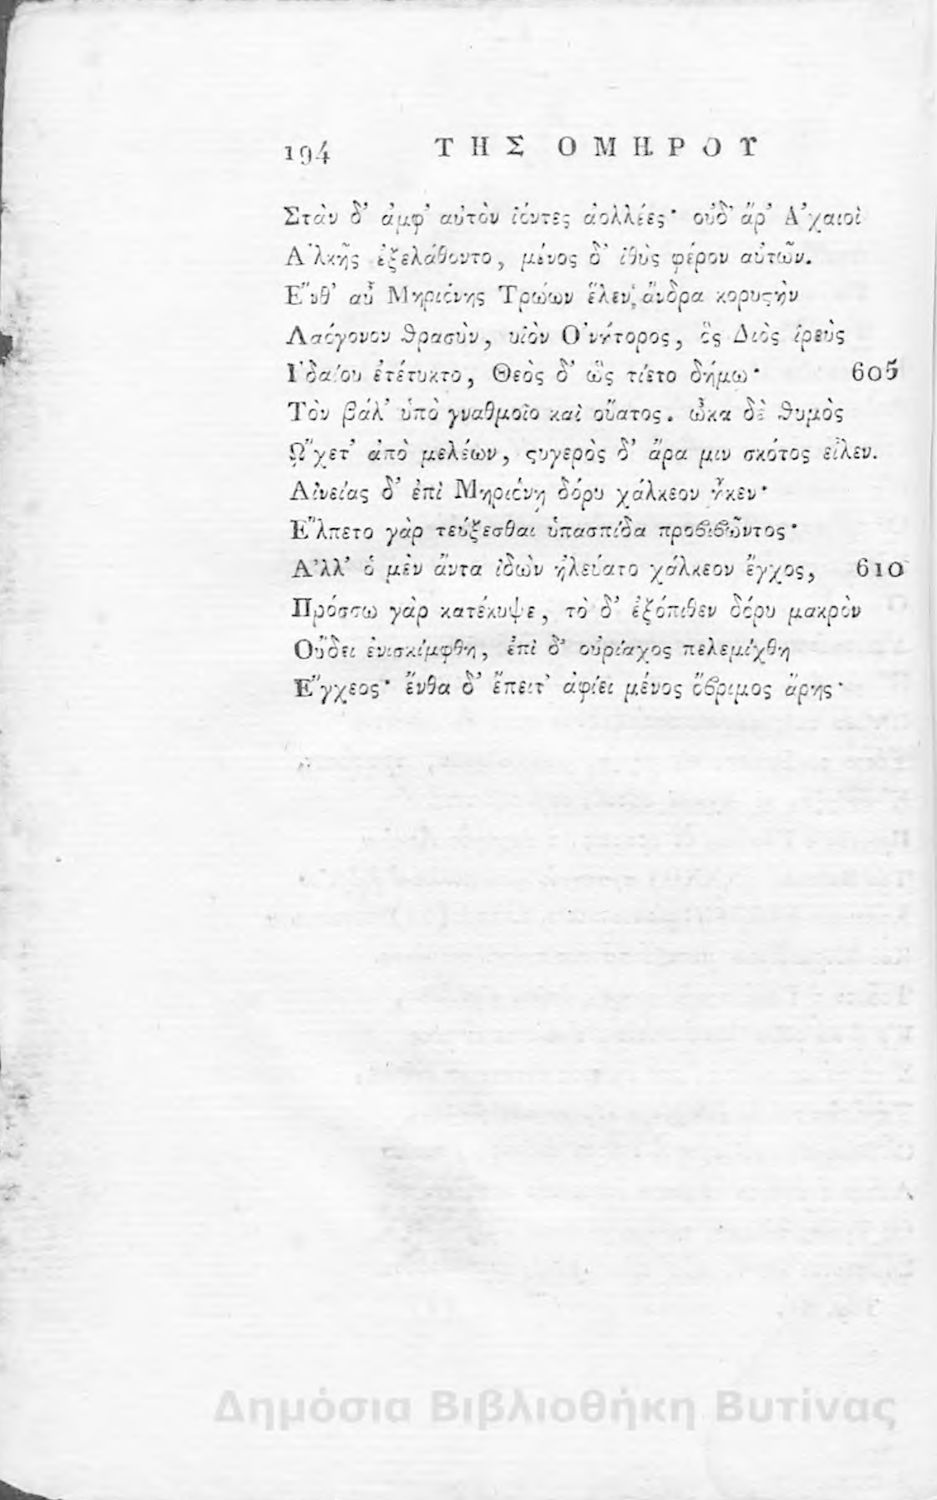 194 ΤΗΣ ΟΜΗΡΟΥ
Στὰν δ' ἀμφ' αὐτὸν ἰόντες ἀολλέες· οὐδ' ἄρ' Ἀχαιοὶ
Ἀλκῆς ἐξελάθοντο, μένος δ' ἰθὺς φέρον αὐτῶν.
Ἔνθ' αὖ Μηριόνης Τρώων ἕλεν ἄνδρα κορυϛὴν
Λαόγονον θρασὺν, υἱὸν Ὀνήτορος, ὃς Διὸς ἱρεὺς
Ἰδαίου ἐτέτυκτο, Θεὸς δ' ὣς τίετο δήμῳ· 605
Τὸν βάλ' ὑπὸ γναθμοῖο καὶ οὔατος. ὦκα δὲ θυμὸς
ᾬχετ' ἀπὸ μελέων, ϛυγερὸς δ' ἄρα μιν σκότος εἷλεν.
Αἰνείας δ' ἐπὶ Μηριόνῃ δόρυ χάλκεον ἧκεν·
Ἔλπετο γὰρ τεύξεσθαι ὑπασπίδα προβιβῶντος·
Ἀλλ' ὁ μὲν ἄντα ἰδὼν ἠλεύατο χάλκεον ἔγχος, 610
Πρόσσω γὰρ κατέκυψε, τὸ δ' ἐξόπιθεν δόρυ μακρὸν
Οὔδει ἐνισκίμφθη, ἐπὶ δ' οὐρίαχος πελεμίχθη
Ἔγχεος· ἔνθα δ' ἔπειτ' ἀφίει μένος ὄβριμος ἄρης·
Δημόσια Βιβλιοθήκη Βυτίνας